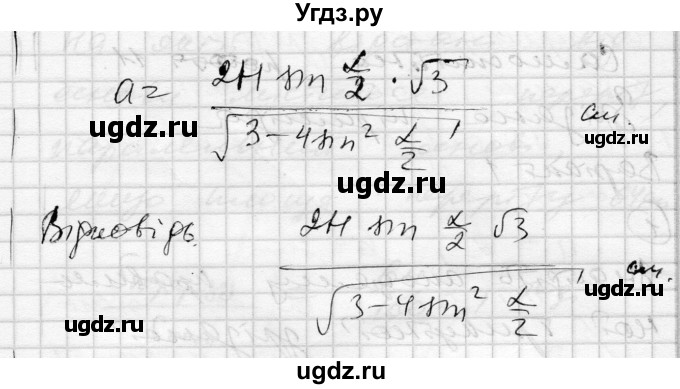 Угдз.ру
a = 2H sin α/2 · √3 / √(3 − 4 sin² α/2) см.
ugdz.ru
ugdz.ru
ugdz.ru
Відповідь. 2H sin α/2 √3 / √(3 − 4 sin² α/2) см.
ugdz.ru
ugdz.ru
ugdz.ru